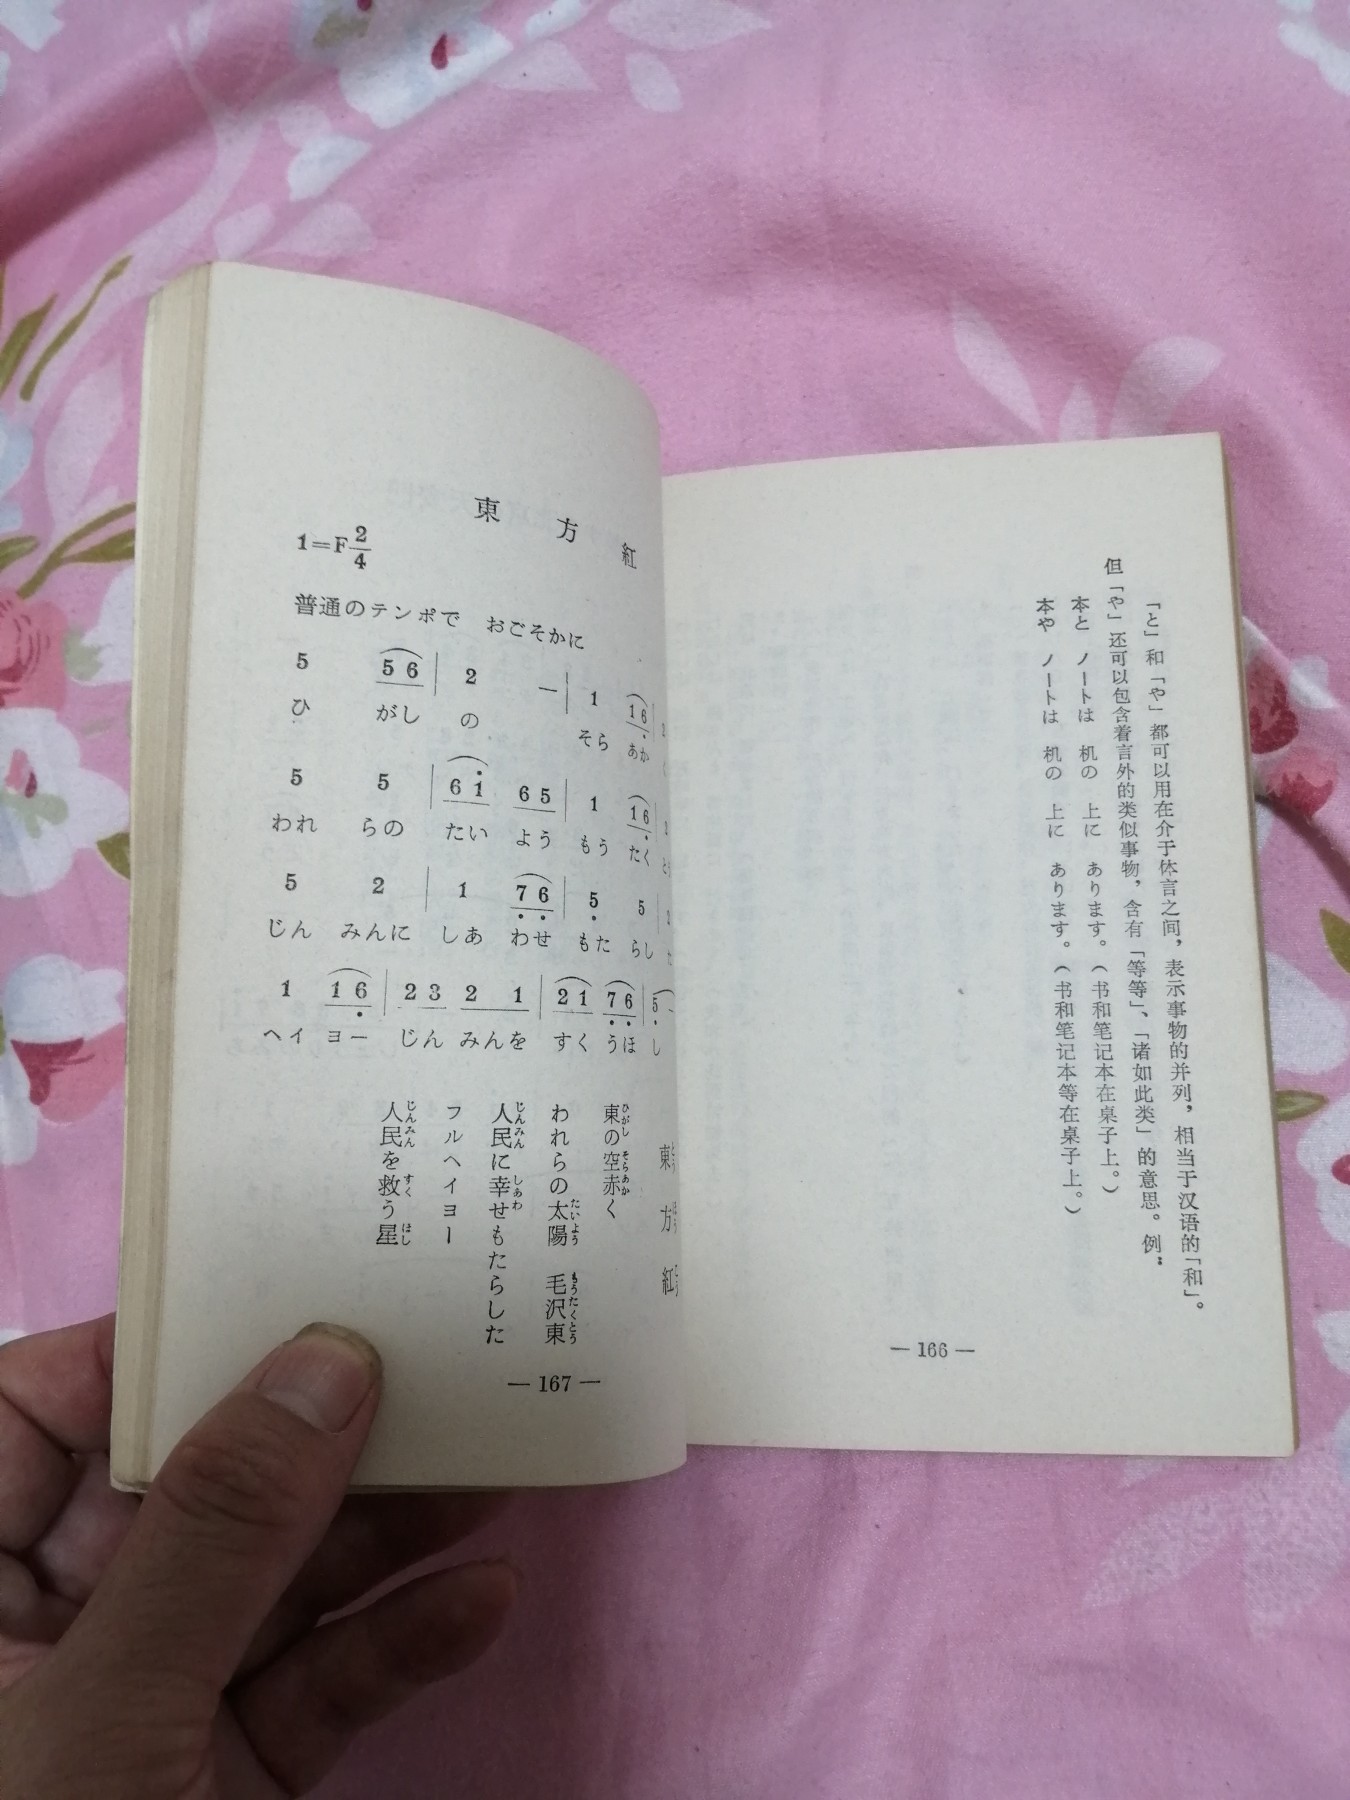 「と」和「や」都可以用在介于体言之间，表示事物的并列，相当于汉语的「和」。
但「や」还可以包含着言外的类似事物，含有「等等」、「诸如此类」的意思。例：
本と ノートは 机の 上に あります。（书和笔记本在桌子上。）
本や ノートは 机の 上に あります。（书和笔记本等在桌子上。）
— 166 —
東 方 紅
1=F 2/4
普通のテンポで おごそかに
5 5 6 | 2 — | 1 1 6 |
ひ がし の そら あか く
5 5 | 6 1 6 5 | 1 1 6 |
われ らの たい よう もう たく と
5 2 | 1 7 6 | 5 5 |
じん みんに しあ わせ もた らし た
1 1 6 | 2 3 2 1 | 2 1 7 6 | 5 —
ヘイ ヨー じん みんを すく うほ し
東 方 紅
東の空赤く
ひがし そらあか
われらの太陽 毛沢東
たいよう もうたくとう
人民に幸せもたらした
じんみん しあわ
フルヘイヨー
人民を救う星
じんみん すく ほし
— 167 —